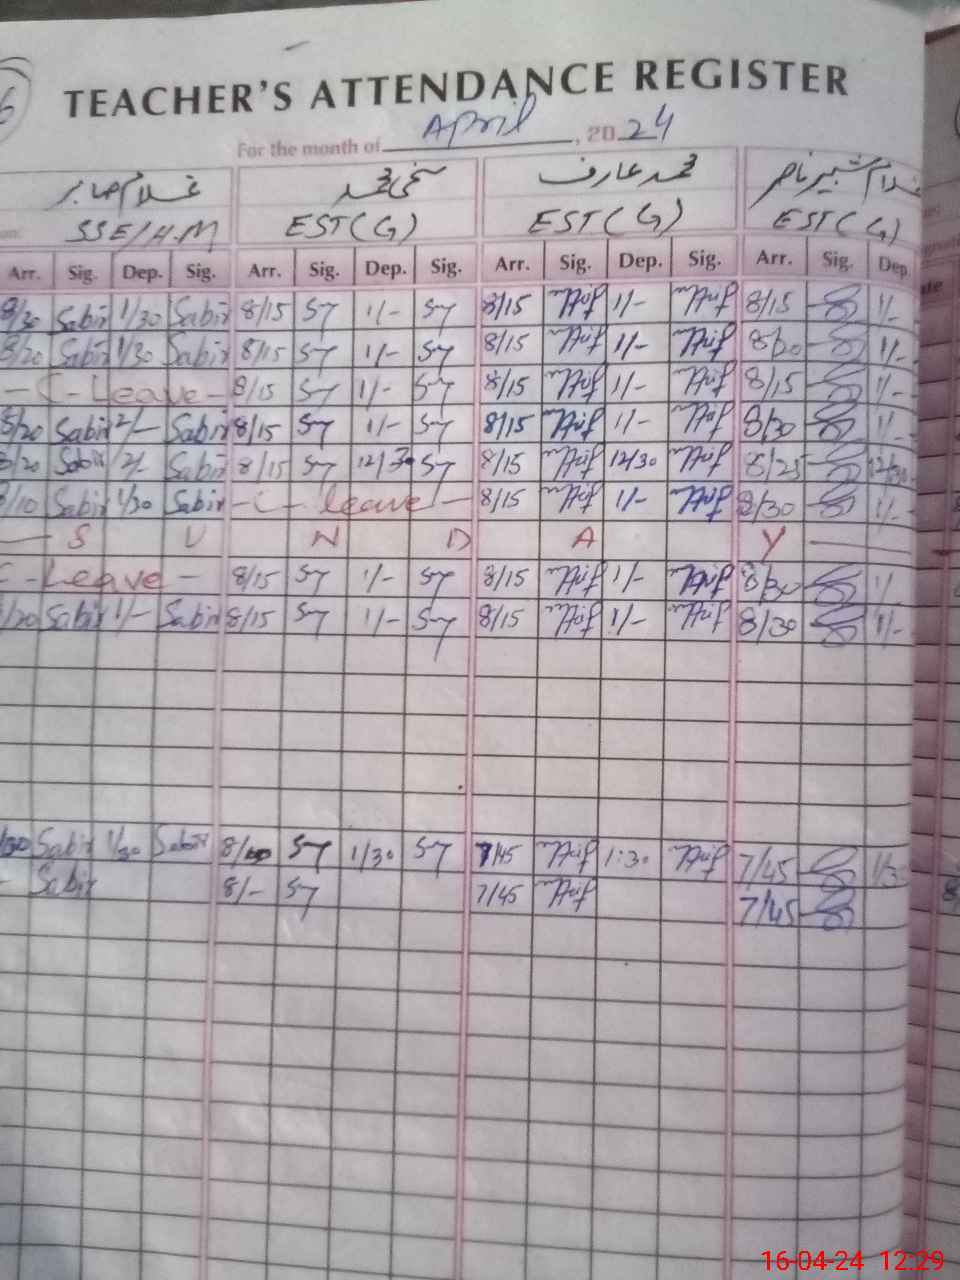 TEACHER'S ATTENDANCE REGISTER
For the month of April, 2024
غلام صابر سخی محمد محمد عارف غلام شبیر ناصر
SSE/H.M EST(G) EST(G) EST(G)
Arr. Sig. Dep. Sig. Arr. Sig. Dep. Sig. Arr. Sig. Dep. Sig. Arr. Sig. Dep.
8/30 Sabir 1/30 Sabir 8/15 1/- 8/15 Arif 1/- Arif 8/15 1/-
8/20 Sabir 1/30 Sabir 8/15 1/- 8/15 Arif 1/- Arif 8/20 1/-
- C - Leave - 8/15 1/- 8/15 Arif 1/- Arif 8/15 1/-
8/20 Sabir 2/- Sabir 8/15 1/- 8/15 Arif 1/- Arif 8/30 1/-
8/20 Sabir 2/- Sabir 8/15 12/30 8/15 Arif 12/30 Arif 8/25 12/30
8/10 Sabir 1/30 Sabir - C - leave - 8/15 Arif 1/- Arif 8/30 1/-
S U N D A Y
C - Leave - 8/15 1/- 8/15 Arif 1/- Arif 8/30 1/
/20 Sabir 1/- Sabir 8/15 1/- 8/15 Arif 1/- Arif 8/30 1/-
/30 Sabir 1/30 Sabir 8/00 1/30 7/45 Arif 1:30 Arif 7/45 1/30
Sabir 8/- 7/45 Arif 7/45
16-04-24 12:29